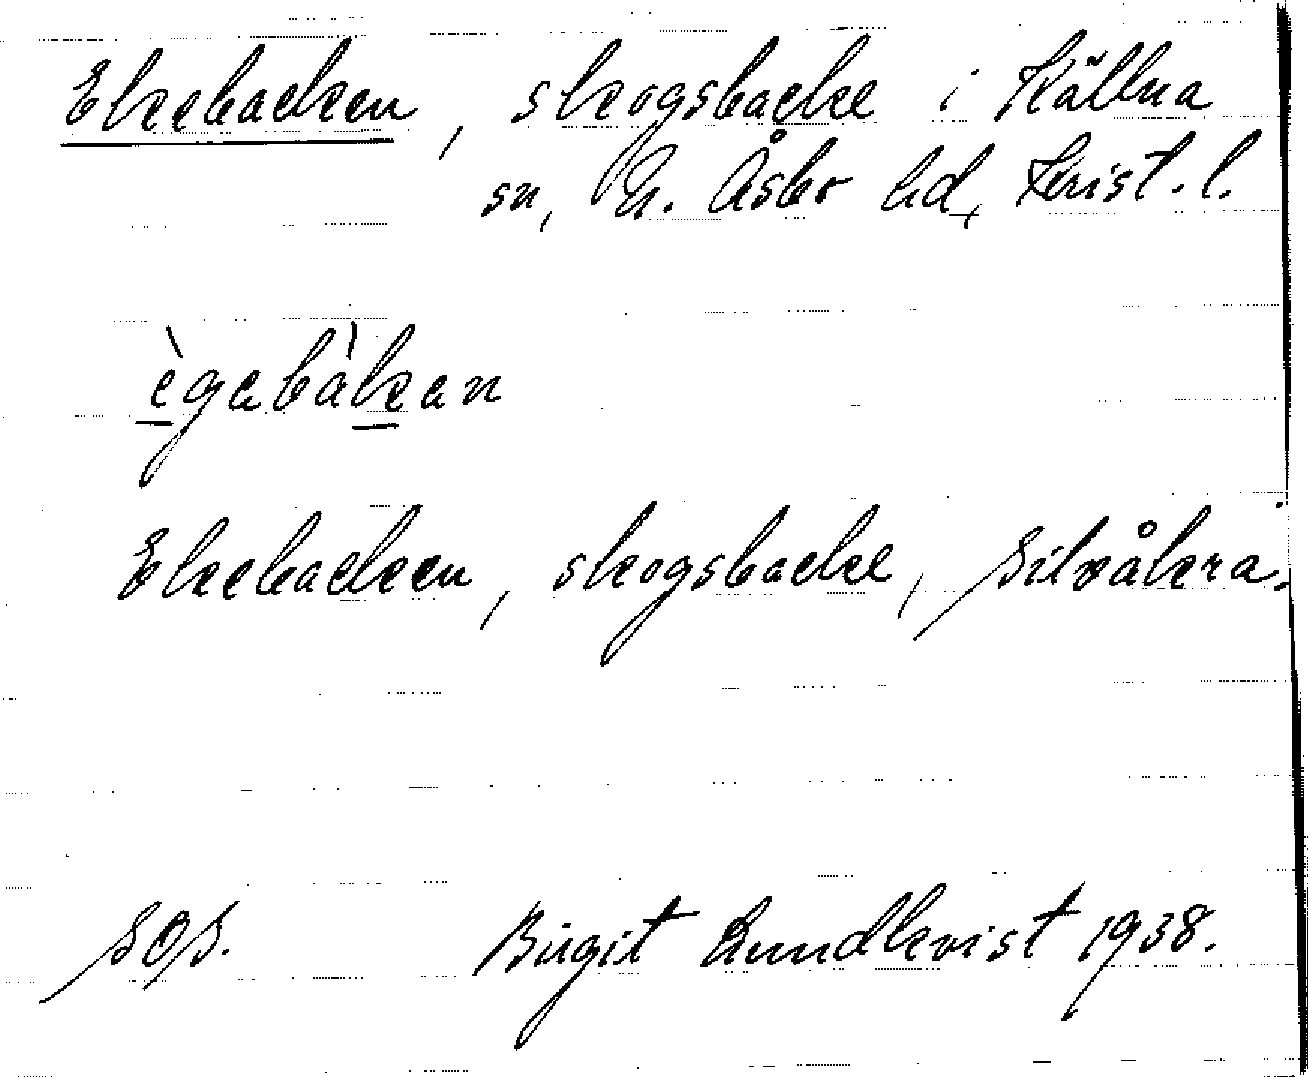 Ekebacken, skogsbacke i Källna
sn, N. Åsbo hd, Krist. l.
ègabàkan
Ekebacken, skogsbacke, Silvåkra.
SOS. Birgit Lundkvist 1938.